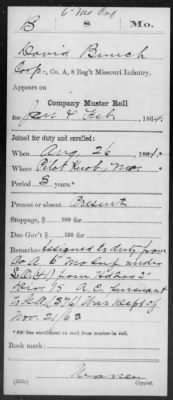 6" Mo Cav
B 8 Mo.
David Bunch
Corp., Co. A, 8 Reg't Missouri Infantry.
Appears on
Company Muster Roll
for Jan & Feb, 1864.
Joined for duty and enrolled:
When Aug. 26, 1861.*
Where Pilot Knob, Mo
Period 3 years.*
Present or absent Present
Stoppage, $ 100 for
Due Gov't $ 100 for
Remarks: Assigned to duty from
Co A 6" Mo under
S.O. from
Div 15 A.C. Pursuant
to War Dept of
Nov. 21/63
*See enrollment on card from muster-in roll.
Book mark:
(358c) Copyist.